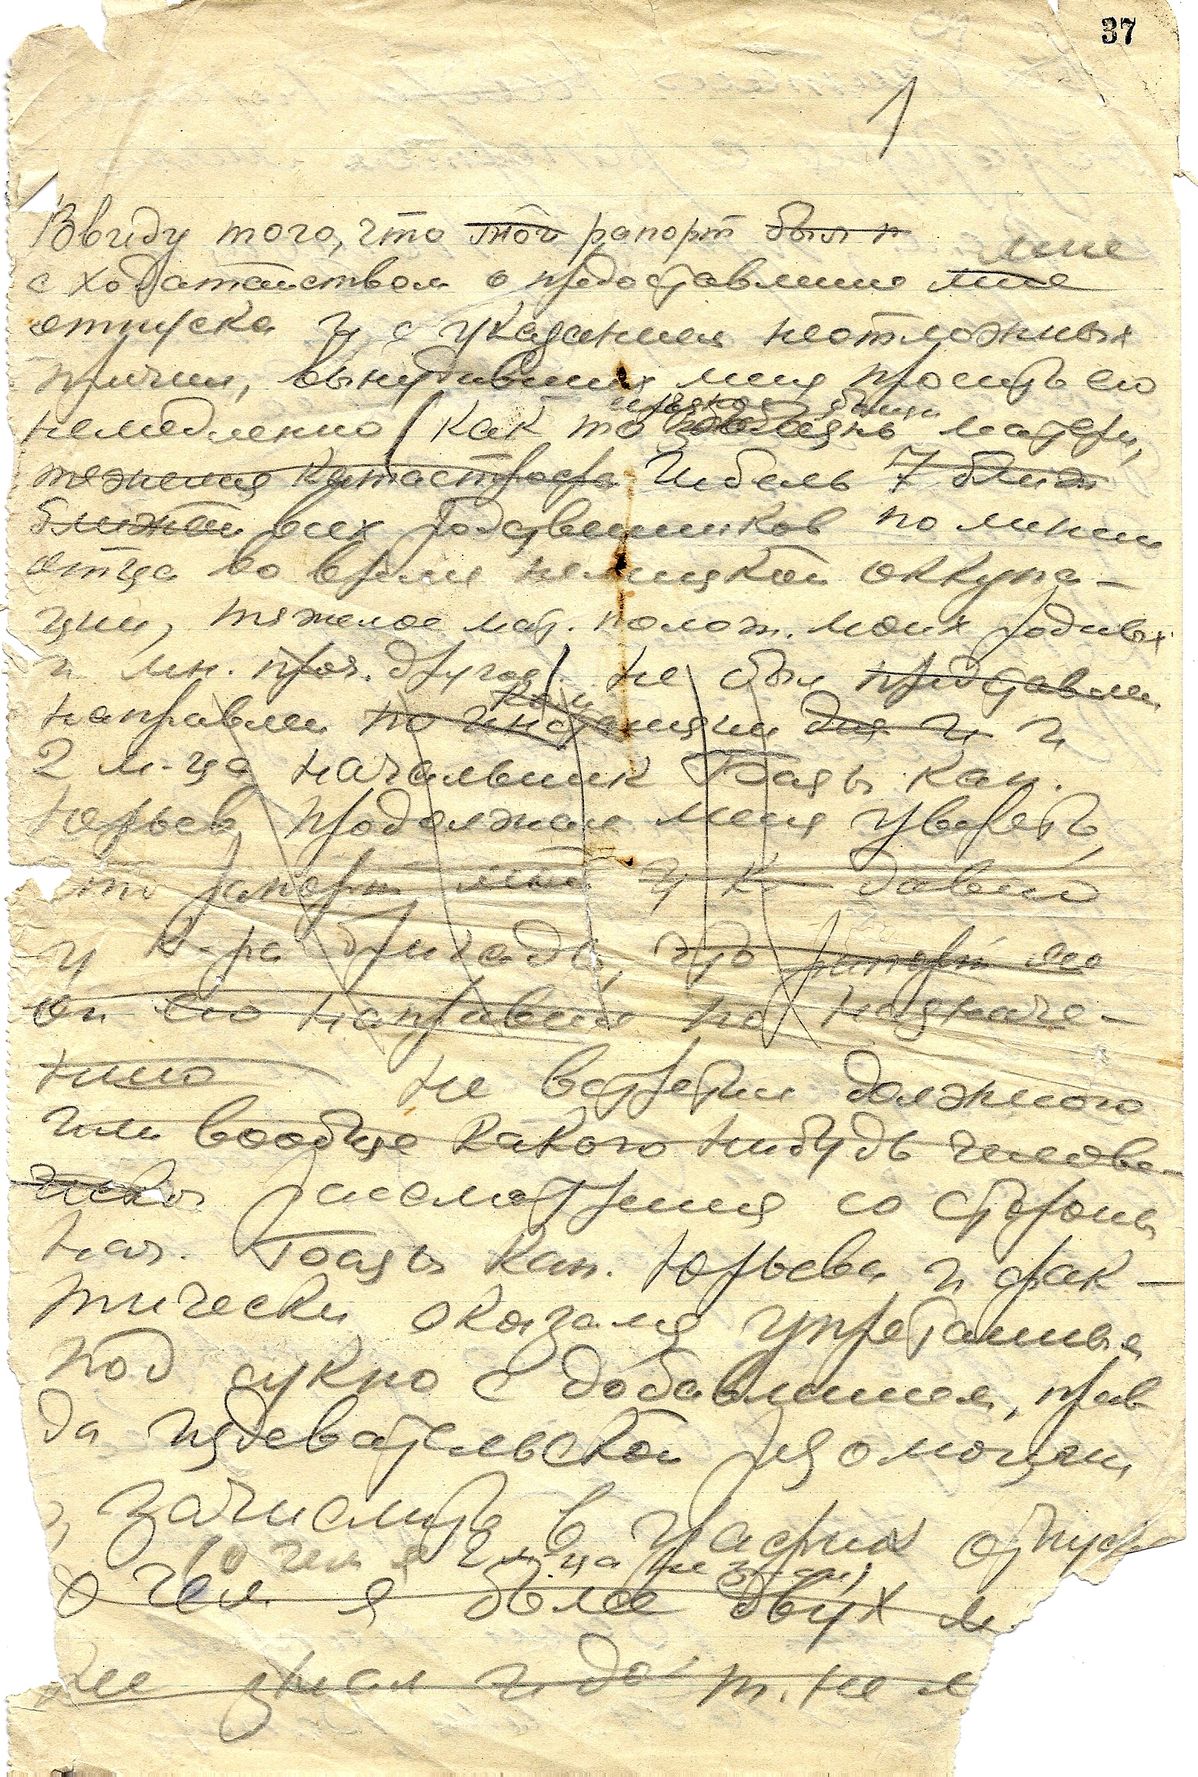 37
1
Ввиду того, что мой рапорт был п
мне
с ходатайством о предоставлении мне
отпуска и с указанием неотложных
причин, вынудивших меня просить его
немедленно (как то болезнь матери,
тяжелая катастрофа гибель 7 ближ
ближай всех родственников по линии
отца во время немецкой оккупа-
ции, тяжелое мат. полож. моих родных
и мн. проч. другое) не был
направлен по инстанции для и и
2 м-ца начальник Базы кап.
Юрьев продолжал меня уверять,
что рапорт мой у к давно
у к-ра бригады, что рапорт
он его направил по назначе-
нию не встретил должного
или вообще какого нибудь челове-
ческого рассмотрения со стороны
нач. Базы кап. Юрьева и фак-
тически оказался упрятанным
под сукно с добавлением, прав
да издевательской резолюции
зачислить в график отпуск
(о чем я 2 м-ца не знал)
о чем я более двух м.
не знал и до